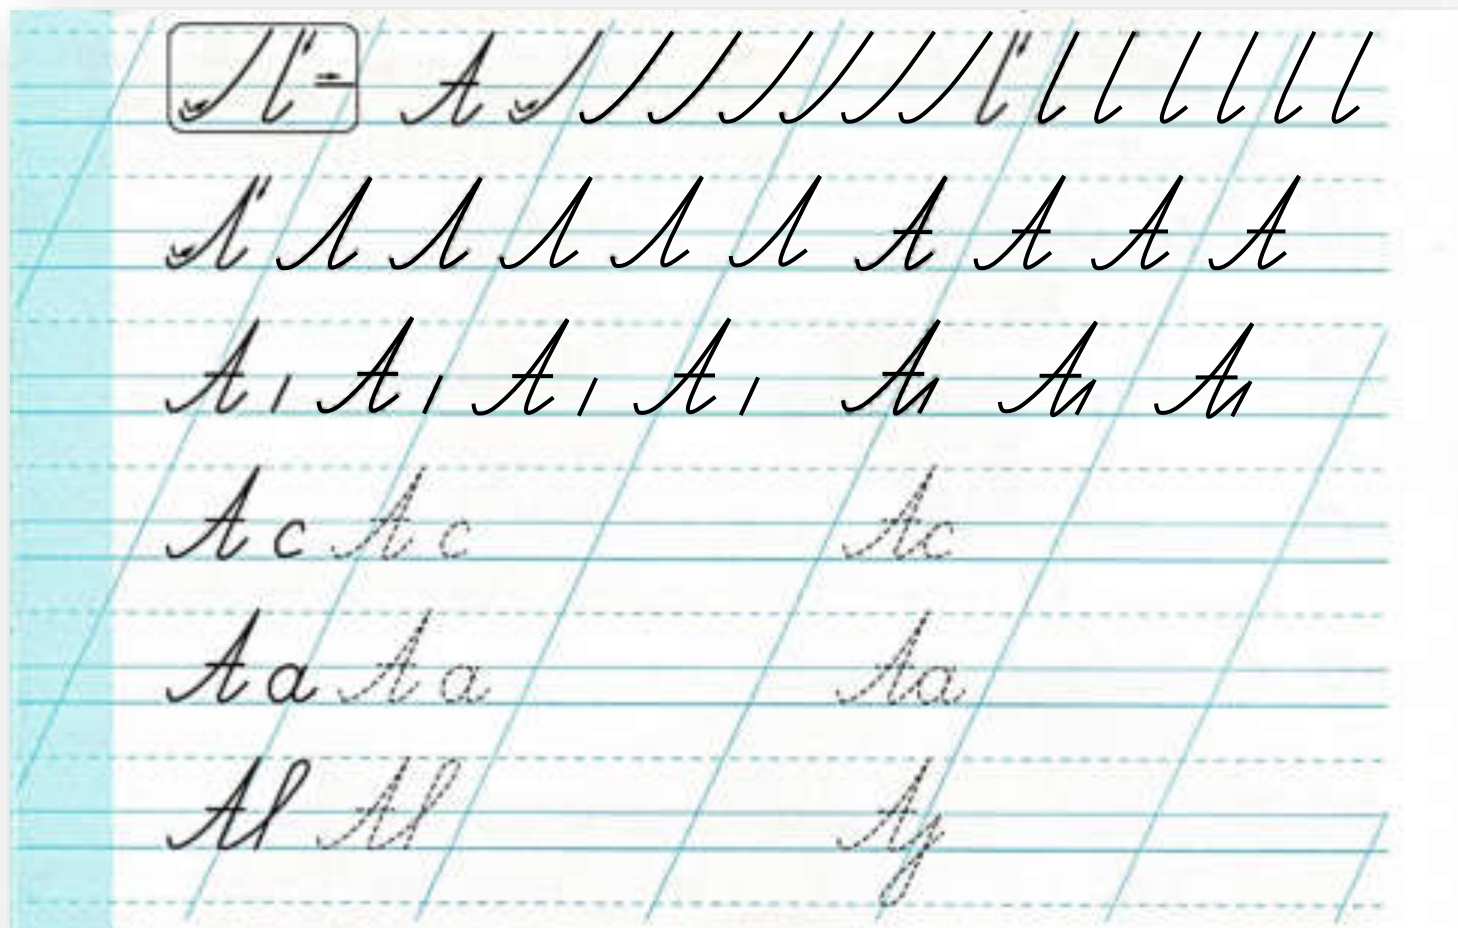 А
А А А А
А А А А А А А
А с А с Ас
А а А а Аа
А А А